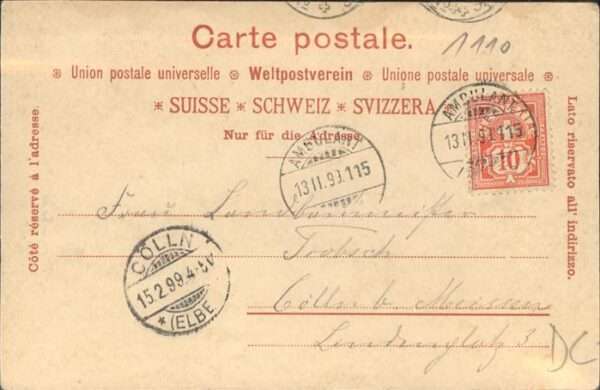 Carte postale.
1110
Union postale universelle Weltpostverein Unione postale universale
* SUISSE * SCHWEIZ * SVIZZERA
Nur für die Adresse.
Côté réservé à l'adresse.
Lato riservato all' indirizzo.
AMBULANT
13.II.99.115
AMBULANT
13.II.99.115
10
Frau
Cölln b. Meissen
3
CÖLLN
15.2.99.4-5V
* (ELBE
DC